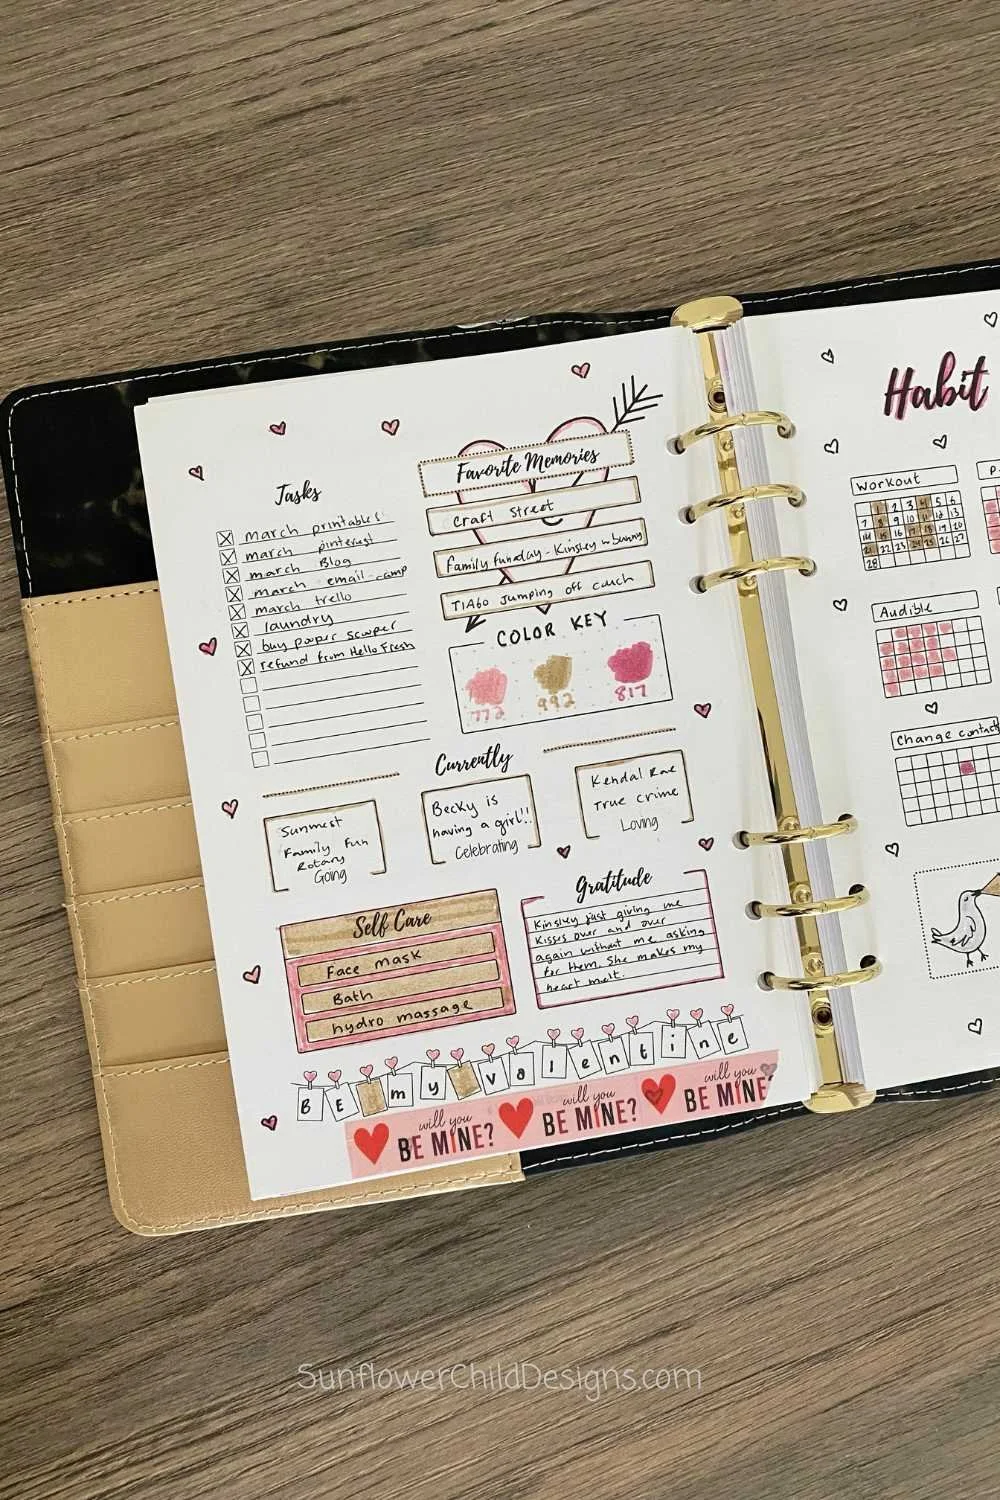 Tasks
march printables
march pinterest
march Blog
march email-camp
march trello
laundry
buy pooper scooper
refund from Hello Fresh
Favorite Memories
Craft Street
Family funday - Kinsley w bunny
Jumping off couch
COLOR KEY
772 992 817
Currently
Sunmest
Family Fun
Rotary
Going
Becky is
having a girl!!
Celebrating
Kendal Rae
True crime
Loving
Self Care
Face mask
Bath
hydro massage
Gratitude
Kinsley just giving me
Kisses over and over
again without me asking
for them. She makes my
heart melt.
BE my valentine
will you BE MINE? will you BE MINE? will you BE MINE?
Habit
Workout
1 2 3 4 5 6
7 8 9 10 11 12 13
14 15 16 17 18 19 20
21 22 23 24 25 26 27
28
P
Audible
Change contacts
SunflowerChildDesigns.com